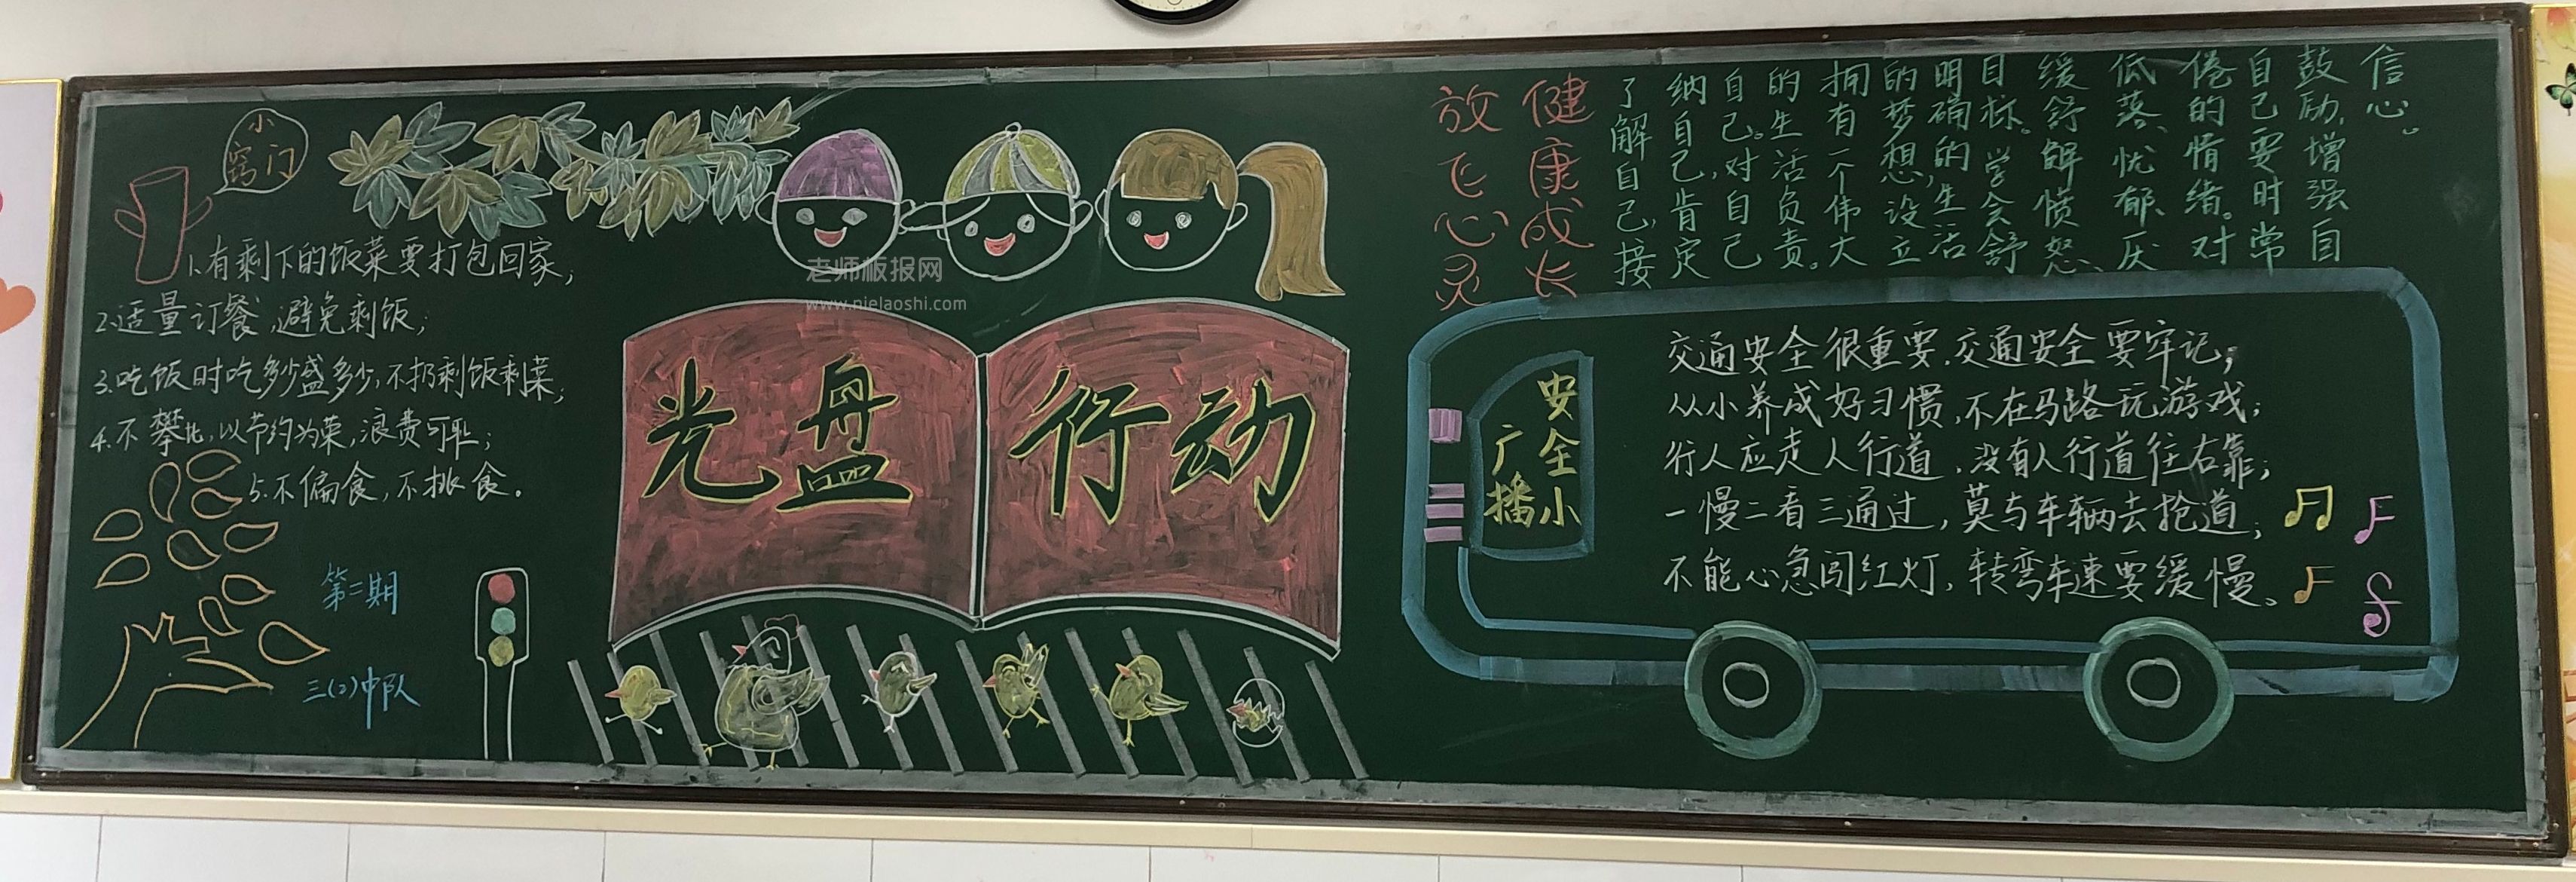 小
窍门
1.有剩下的饭菜要打包回家;
2.适量订餐,避免剩饭;
3.吃饭时吃多少盛多少,不扔剩饭剩菜;
4.不攀比,以节约为荣,浪费可耻;
5.不偏食,不挑食。
第二期
三(2)中队
老师板报网
www.pielaoshi.com
光盘行动
健康成长
放飞心灵
了解自己,接
纳自己,肯定
自己。对自己
的生活负责。
拥有一个伟大
的梦想,设立
明确的生活
目标。学会舒
缓舒解愤怒、
低落、忧郁、厌
倦的情绪。对
自己要时常
鼓励,增强自
信心。
安全小
广播
交通安全很重要,交通安全要牢记;
从小养成好习惯,不在马路玩游戏;
行人应走人行道,没有人行道往右靠;
一慢二看三通过,莫与车辆去抢道;
不能心急闯红灯,转弯车速要缓慢。